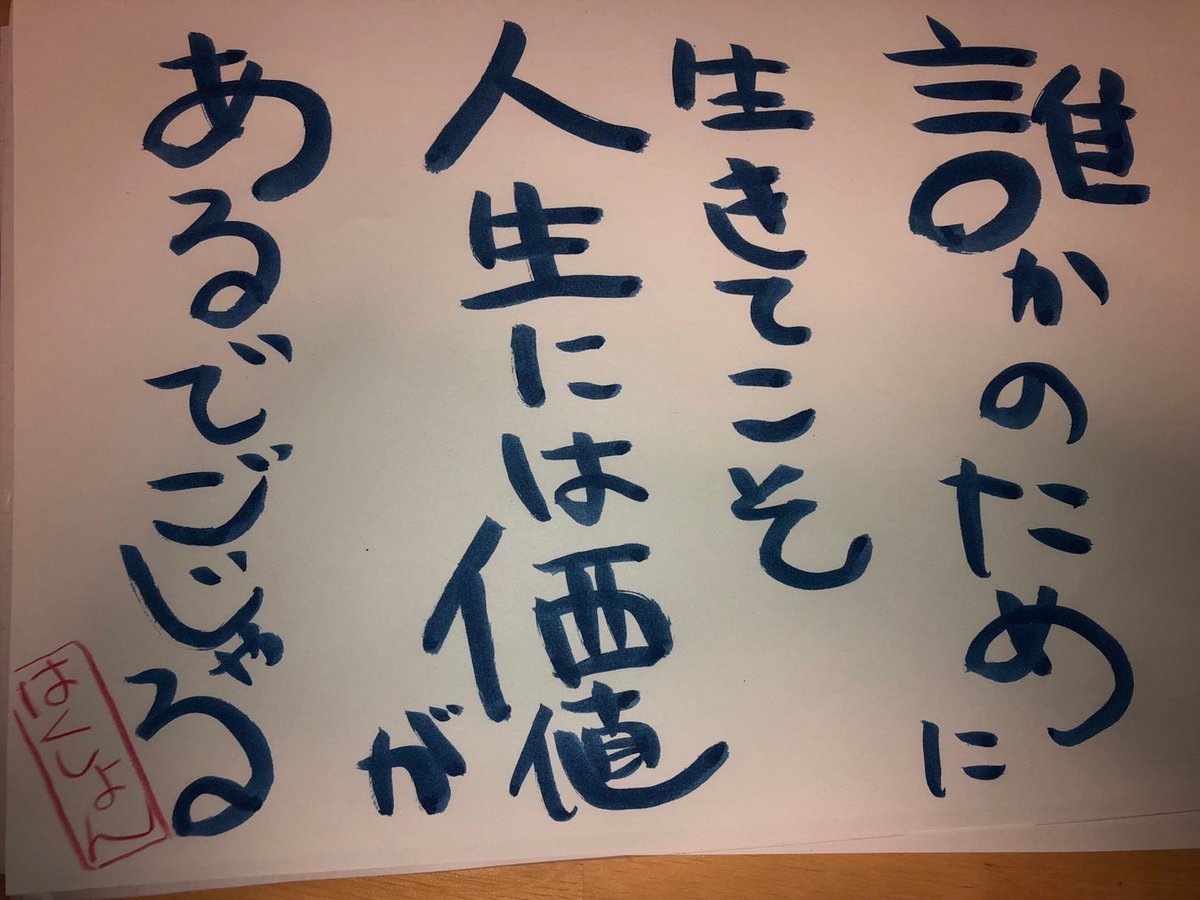 誰かのために
生きてこそ
人生には価値が
あるでごじゃる
はくしょん